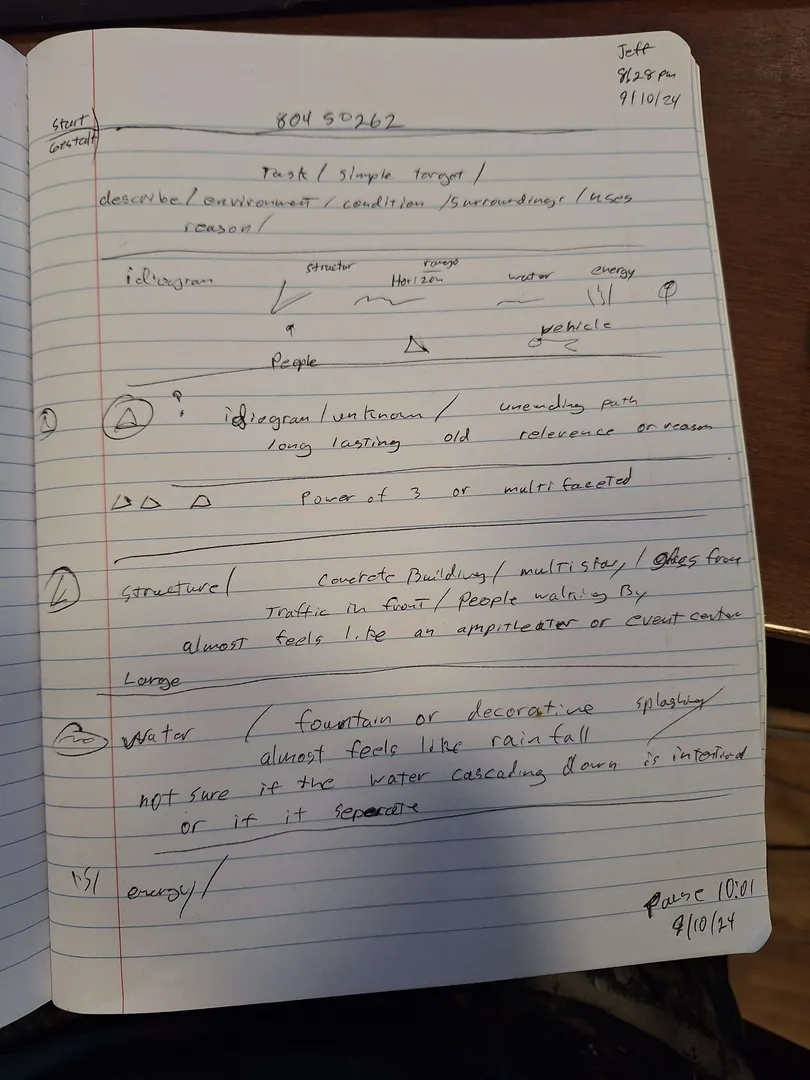 Jeff
8:28 pm
9/10/24
Start
Gestalt
80450262
Task / simple target /
describe / environment / condition / surroundings / uses
reason /
idiogram structur Horizon range water energy
People vehicle
? idiogram / unknown / unending path
long lasting old relevence or reason
Power of 3 or multi faceted
structure / Concrete Building / multistory / from
Traffic in front / People walking By
almost feels like an ampitleater or event center
Large
Water / fountain or decorative splashing
almost feels like rain fall
not sure if the water cascading down is intentional
or if it seperate
energy /
Pause 10:01
9/10/24